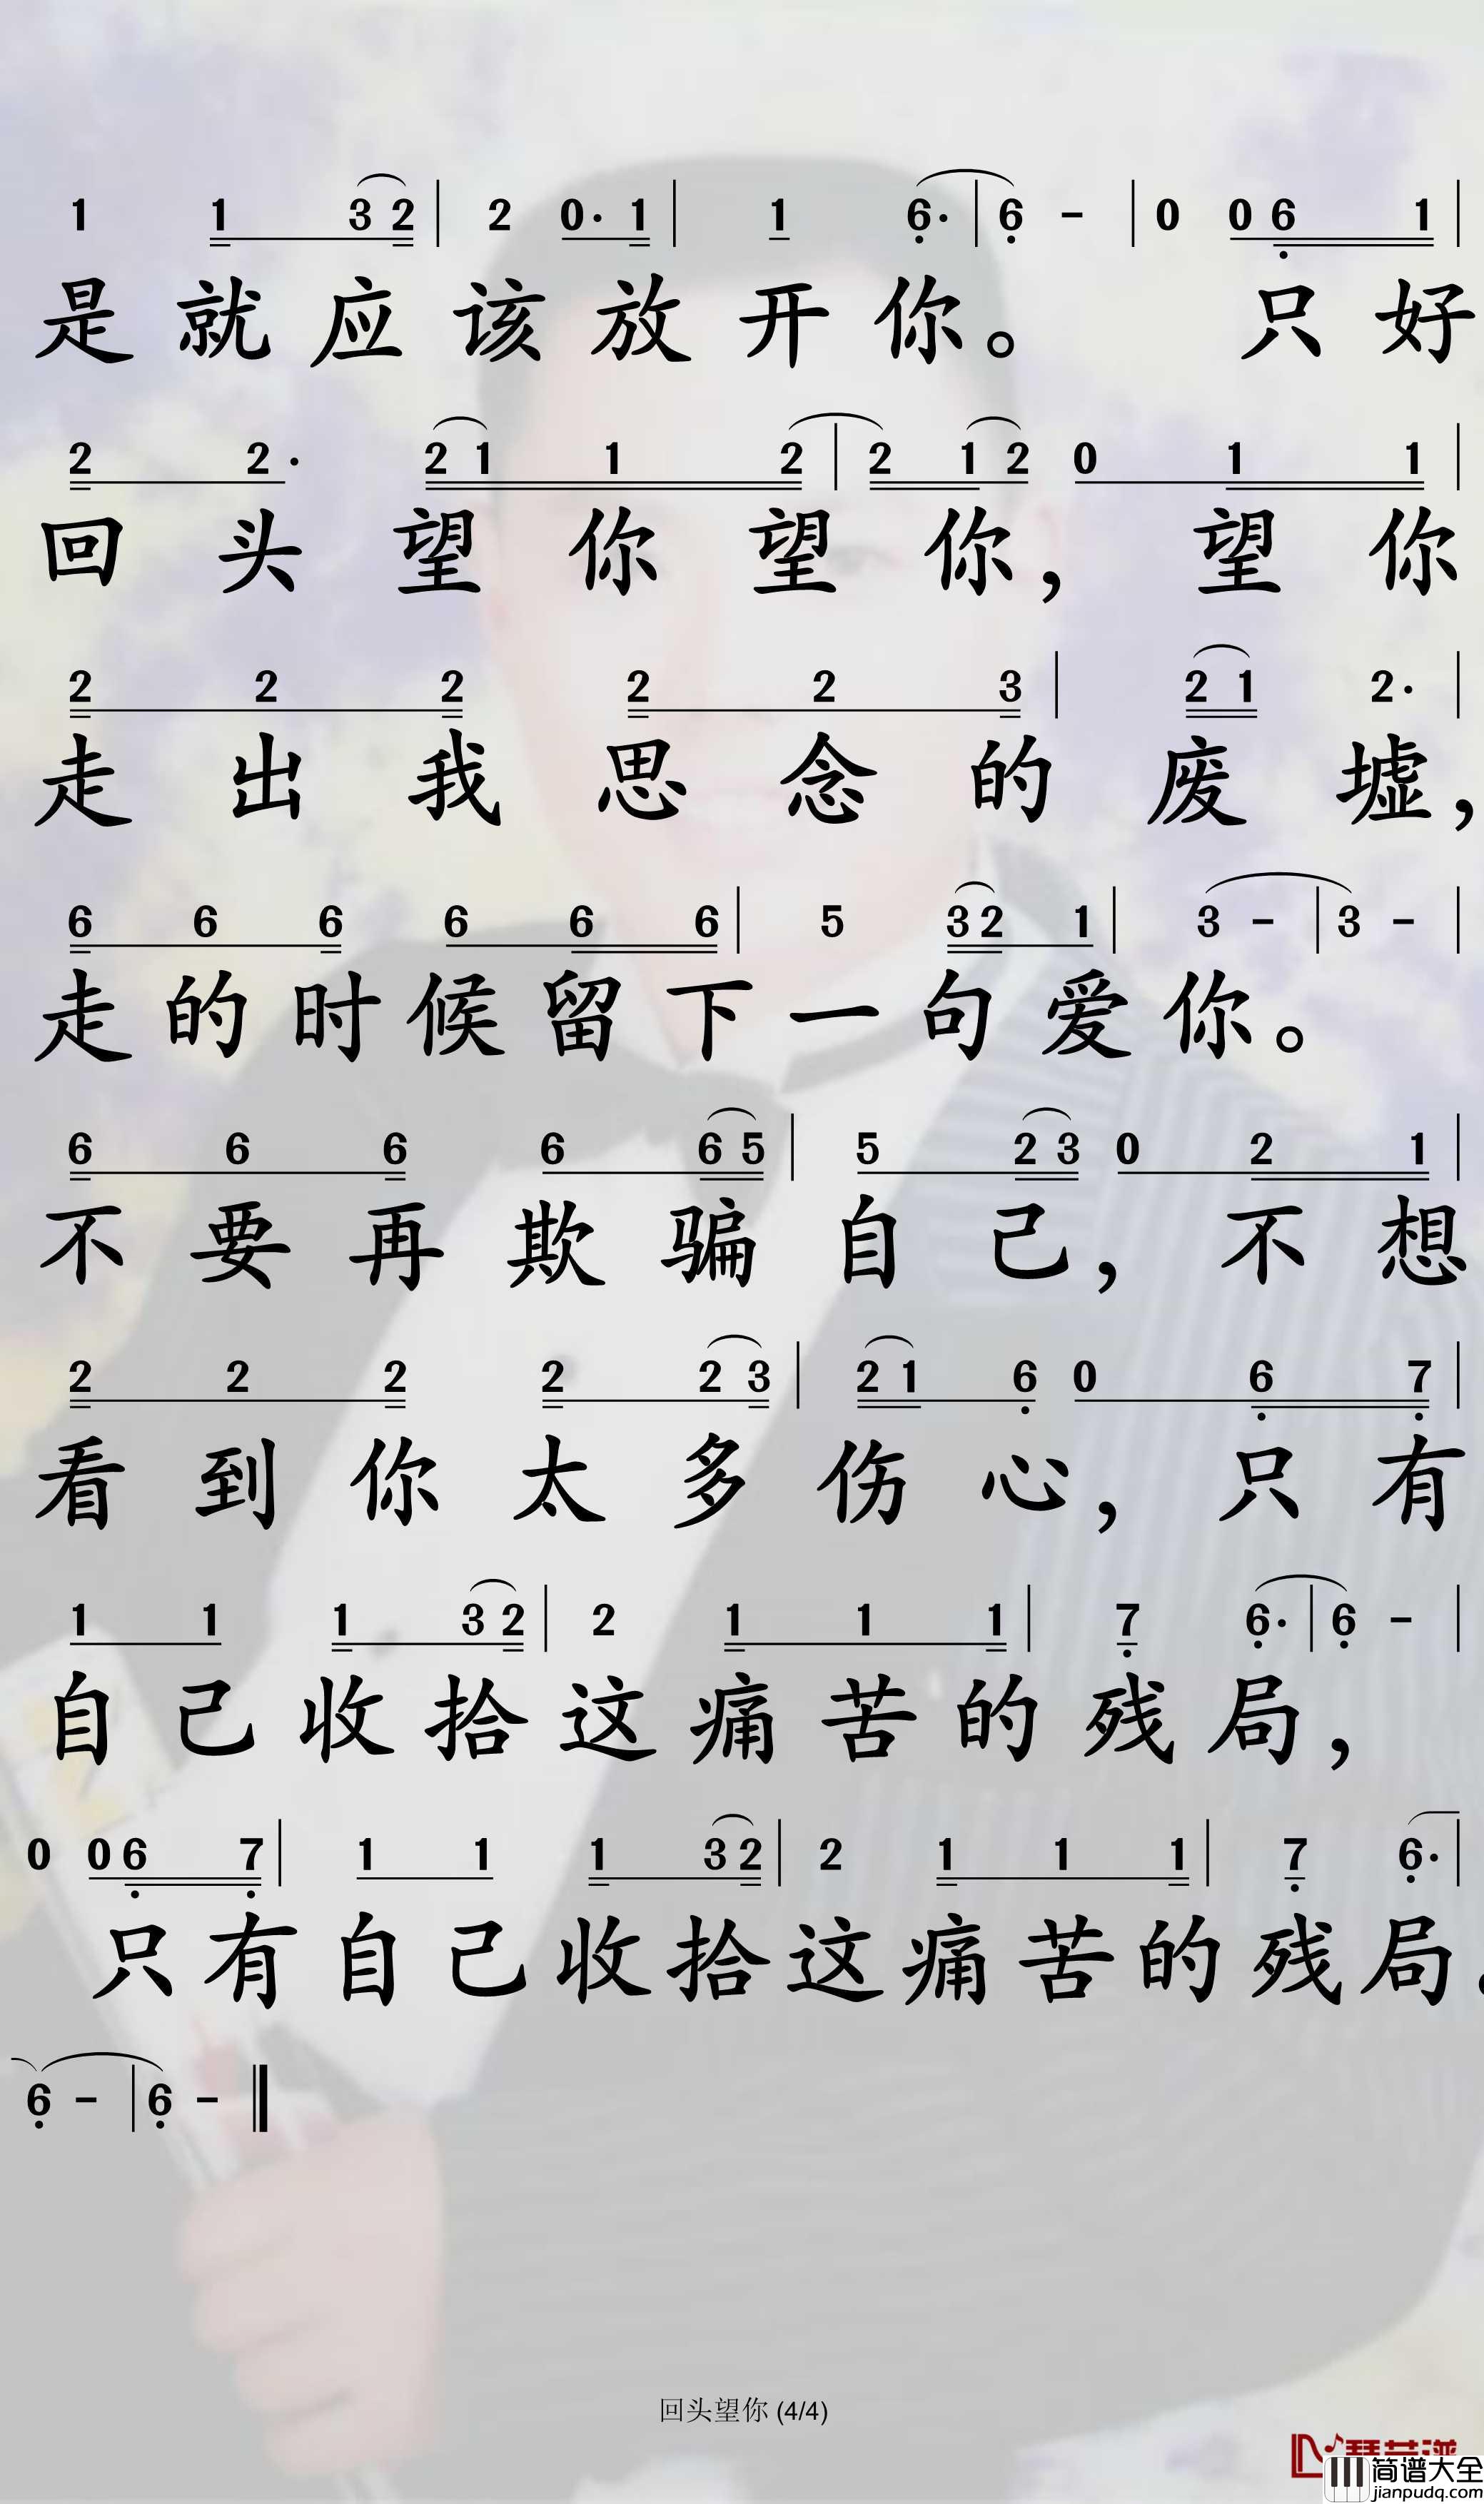 1 1 3 2 | 2 0· 1 | 1 6· | 6 - | 0 0 6 1 |
是就应该放开你。 只好
2 2· 2 1 1 2 | 2 1 2 0 1 1 |
回头望你望你，望你
2 2 2 2 2 3 | 2 1 2· |
走出我思念的废墟，
6 6 6 6 6 6 | 5 3 2 1 | 3 - | 3 - |
走的时候留下一句爱你。
6 6 6 6 6 5 | 5 2 3 0 2 1 |
不要再欺骗自己，不想
2 2 2 2 2 3 | 2 1 6 0 6 7 |
看到你太多伤心，只有
1 1 1 3 2 | 2 1 1 1 | 7 6· | 6 - |
自己收拾这痛苦的残局，
0 0 6 7 | 1 1 1 3 2 | 2 1 1 1 | 7 6· |
只有自己收拾这痛苦的残局。
6 - | 6 - ‖
回头望你 (4/4)
简谱大全
jianpudq.com